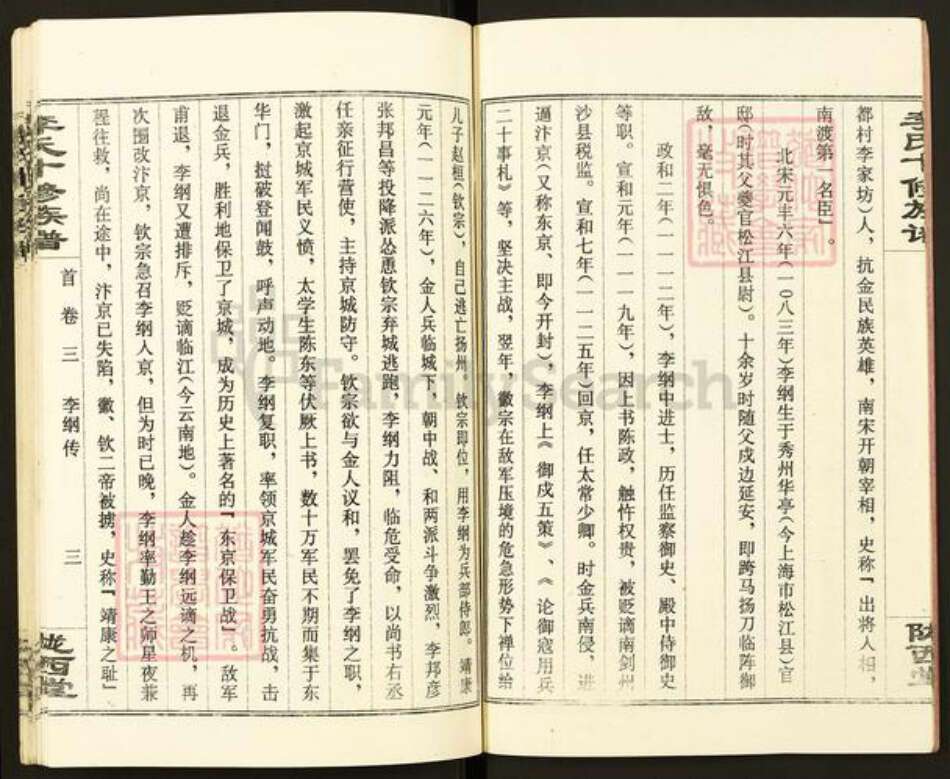 都村李家坊)人，抗金民族英雄，南宋开朝宰相，史称「出将人相，
南渡第一名臣」。
北宋元丰六年(一○八三年)李纲生于秀州华亭(今上海市松江县)官
邸(时其父夔官松江县尉)。十余岁时随父戍边延安，即跨马扬刀临阵御
敌，毫无惧色。
政和二年(一一一二年)，李纲中进士，历任监察御史、殿中侍御史
等职。宣和元年(一一一九年)，因上书陈政，触忤权贵，被贬谪南剑州
沙县税监。宣和七年(一一二五年)回京，任太常少卿。时金兵南侵，进
逼汴京(又称东京、即今开封)，李纲上《御戍五策》、《论御寇用兵
二十事札》等，坚决主战，翌年，徽宗在敌军压境的危急形势下禅位给
儿子赵桓(钦宗)，自己逃亡扬州。钦宗即位，用李纲为兵部侍郎。靖康
元年(一一二六年)，金人兵临城下，朝中战、和两派斗争激烈，李邦彦
张邦昌等投降派怂恿钦宗弃城逃跑，李纲力阻，临危受命，以尚书右丞
任亲征行营使，主持京城防守。钦宗欲与金人议和，罢免了李纲之职，
激起京城军民义愤，太学生陈东等伏厥上书，数十万军民不期而集于东
华门，挝破登闻鼓，呼声动地。李纲复职，率领京城军民奋勇抗战，击
退金兵，胜利地保卫了京城，成为历史上著名的「东京保卫战」。敌军
甫退，李纲又遭排斥，贬谪临江(今云南地)。金人趁李纲远谪之机，再
次围改汴京，钦宗急召李纲人京，但为时已晚，李纲率勤王之师星夜兼
程往救，尚在途中，汴京已失陷，徽、钦二帝被掳，史称「靖康之耻」
李氏十修族谱
首卷三 李纲传 三
陇西堂